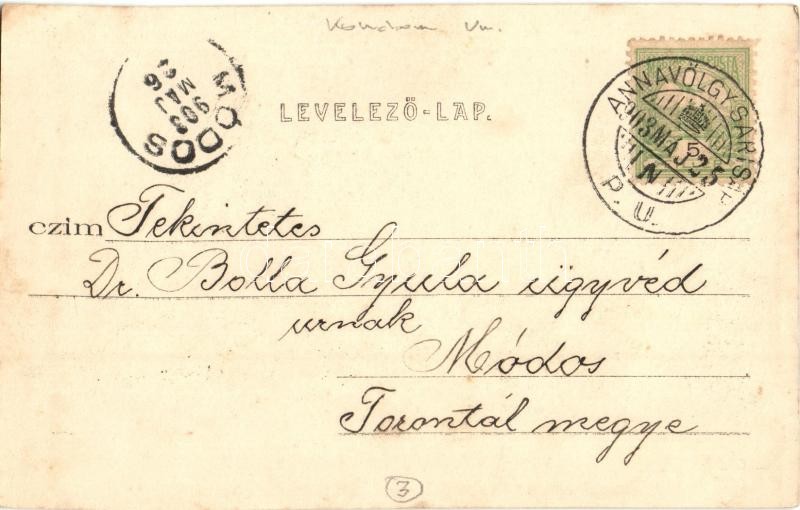 LEVELEZŐ-LAP.
MÓDOS
903
MÁJ
ANNAVÖLGY-SÁRIS
903 MÁJ 25
N
P. U.
5
czim Tekintetes
Dr. Bolla Gyula ügyvéd
urnak
Módos
Torontál megye
3